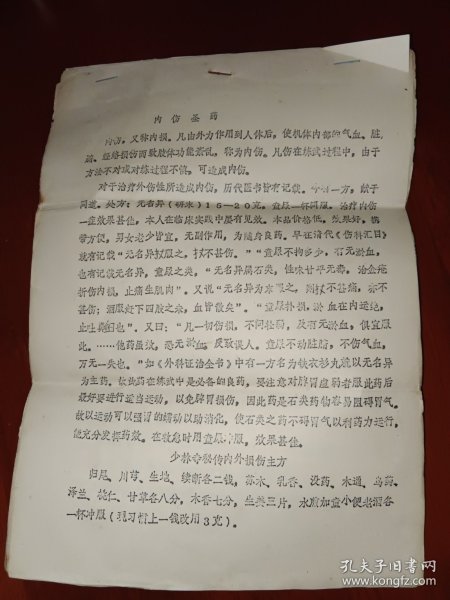 内伤圣药
内伤，又称内损。凡由外力作用到人体后，使机体内部的气血、脏
腑、经络损伤而致肢体功能紊乱，称为内伤。凡伤在练武过程中，由于
方法不对或对练过程不慎，可造成内伤。
对于治疗外伤性所造成内伤，历代医书皆有记载，今有一方，献于
同道。处方：无名异（研末）15—20克，童尿一杯调服。治疗内伤
一症效果甚佳，本人在临床实践中屡有见效。本品价格低，效果好，携
带方便，男女老少皆宜，无副作用，为随身良药。早在清代《伤科汇目
就有记载“无名异拭服之，杖不甚伤。”“童尿不拘多少，右无淤血，
也有记载无名异，童尿之类，“无名异属石类，性味甘平无毒。治金疮
折伤内损，止痛生肌肉”。又说“无名异为末服之，则杖不甚痛，亦不
甚伤；酒服趁下四肢之末，血皆散矣”。“童尿扑损，淤血在内运绝，
止吐衄回也”。又曰：“凡一切伤损，不问轻弱，及有无淤血，俱宜服
此。……他药虽效，恐无淤血，反致误人。童尿不动脏腑，不伤气血，
万无一失也。”如《外科证治全书》中有一方名为铁衣杉丸就以无名异
为主药。故此药在练武中是必备的良药。要注意对脾胃虚弱者服此药后
最好要进行适当运动，以免脾胃损伤，因此药是石类药物容易阻碍胃气。
故以运动可以强胃的蠕动以助消化，使石类之药不碍胃气以利药力运行，
能充分发挥药效。在救急时用童尿，效果甚佳。
少林寺秘传内外损伤主方
归尾、川芎、生地、续断各二钱，苏木、乳香、没药、木通、乌药、
泽兰、桃仁、甘草各八分，木香七分，生姜三片，水煎加童小便老酒各
一杯冲服（现习惯上一钱改用3克）。
孔夫子旧书网
www.kongfz.com